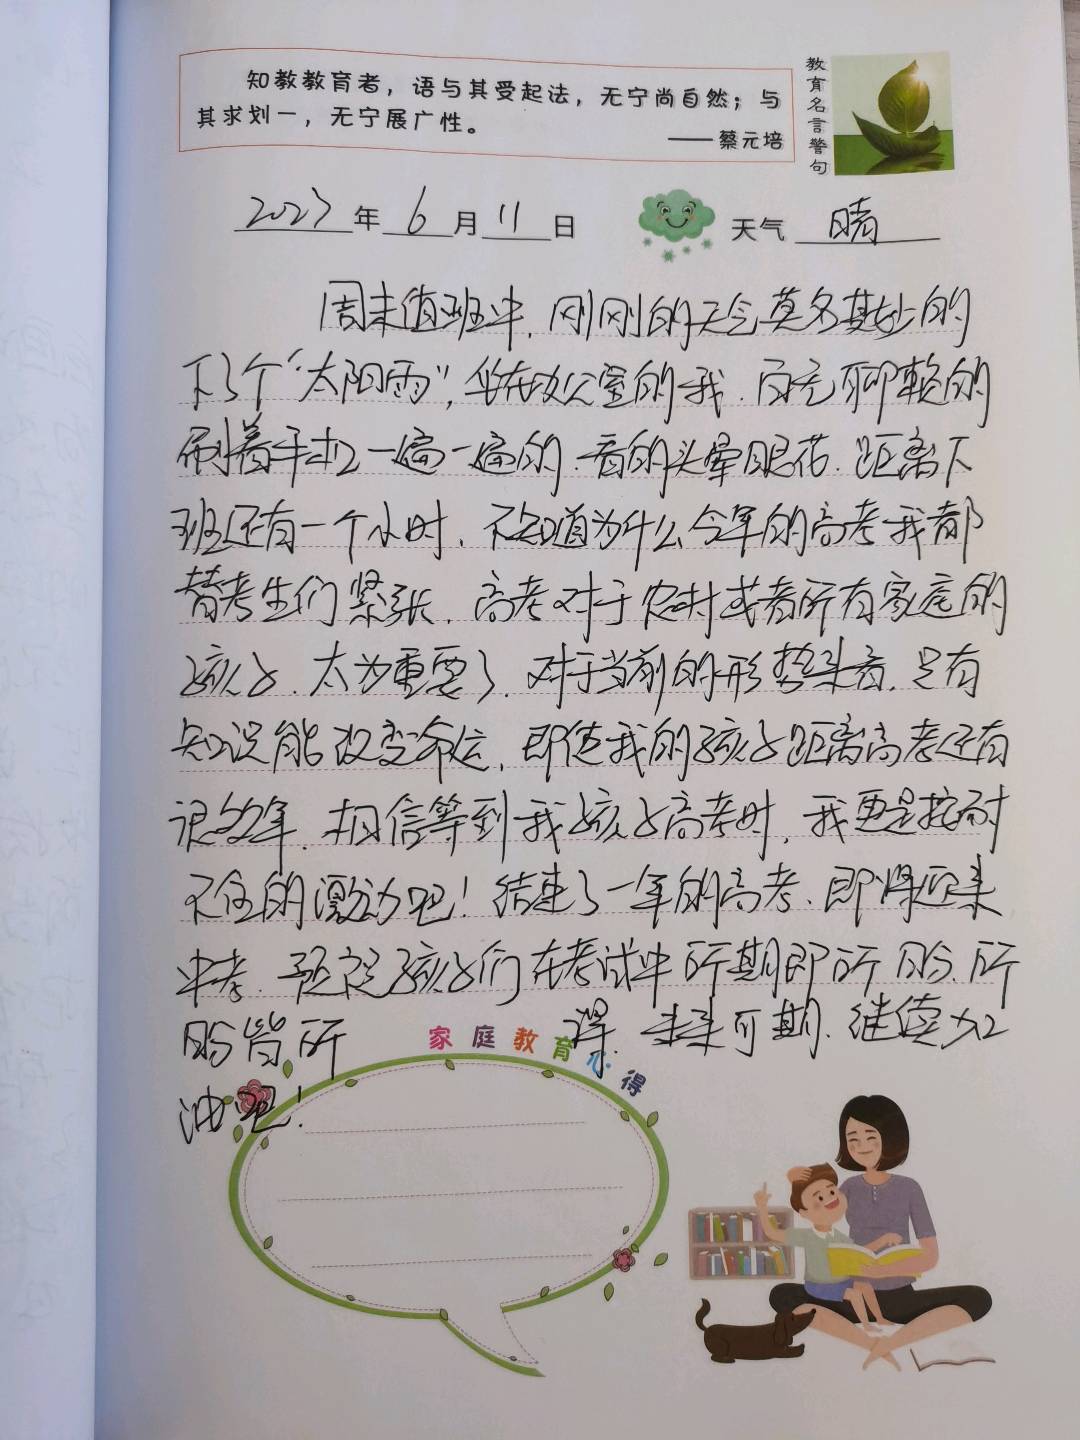 知教教育者，语与其受起法，无宁尚自然；与
其求划一，无宁展广性。
——蔡元培
教育名言警句
2023年6月11日
天气 晴
周末值班中，刚刚的天气莫名其妙的
下了个“太阳雨”，坐在办公室的我，百无聊赖的
刷着手机一遍一遍的，看的头晕眼花，距离下
班还有一个小时，不知道为什么今年的高考我都
替考生们紧张，高考对于农村或者所有家庭的
孩子，太为重要了，对于当前的形势来看，只有
知识能改变命运，即使我的孩子距离高考还有
很多年，相信等到我孩子高考时，我更是按耐
不住的激动吧！结束了一年的高考，即将迎来
中考，预祝孩子们在考试中所期即所盼，所
盼皆所得，未来可期，继续加
油吧！
家庭教育心得